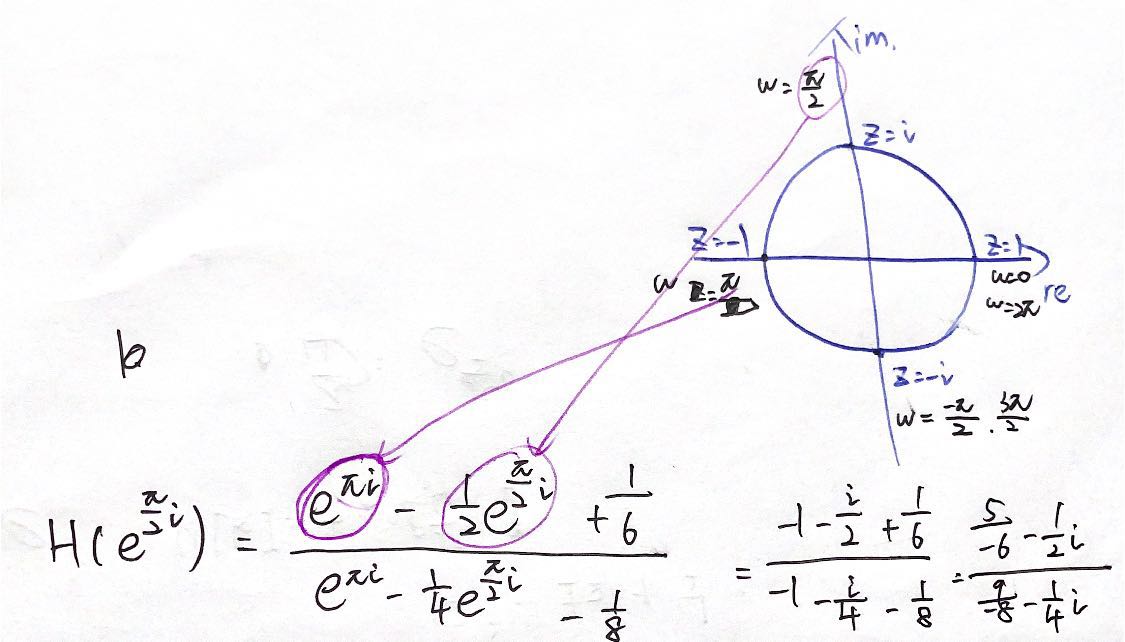 im.
w = π/2
z=i
z=-1
z=1
w
z=π
w=0
w=2π
re
z=-i
w = -π/2 . 3π/2
b
H(e^{π/2 i}) = (e^{πi} - 1/2 e^{π/2 i} + 1/6) / (e^{πi} - 1/4 e^{π/2 i} - 1/8) = (-1 - i/2 + 1/6) / (-1 - i/4 - 1/8) = (5/-6 - 1/2 i) / (9/-8 - 1/4 i)